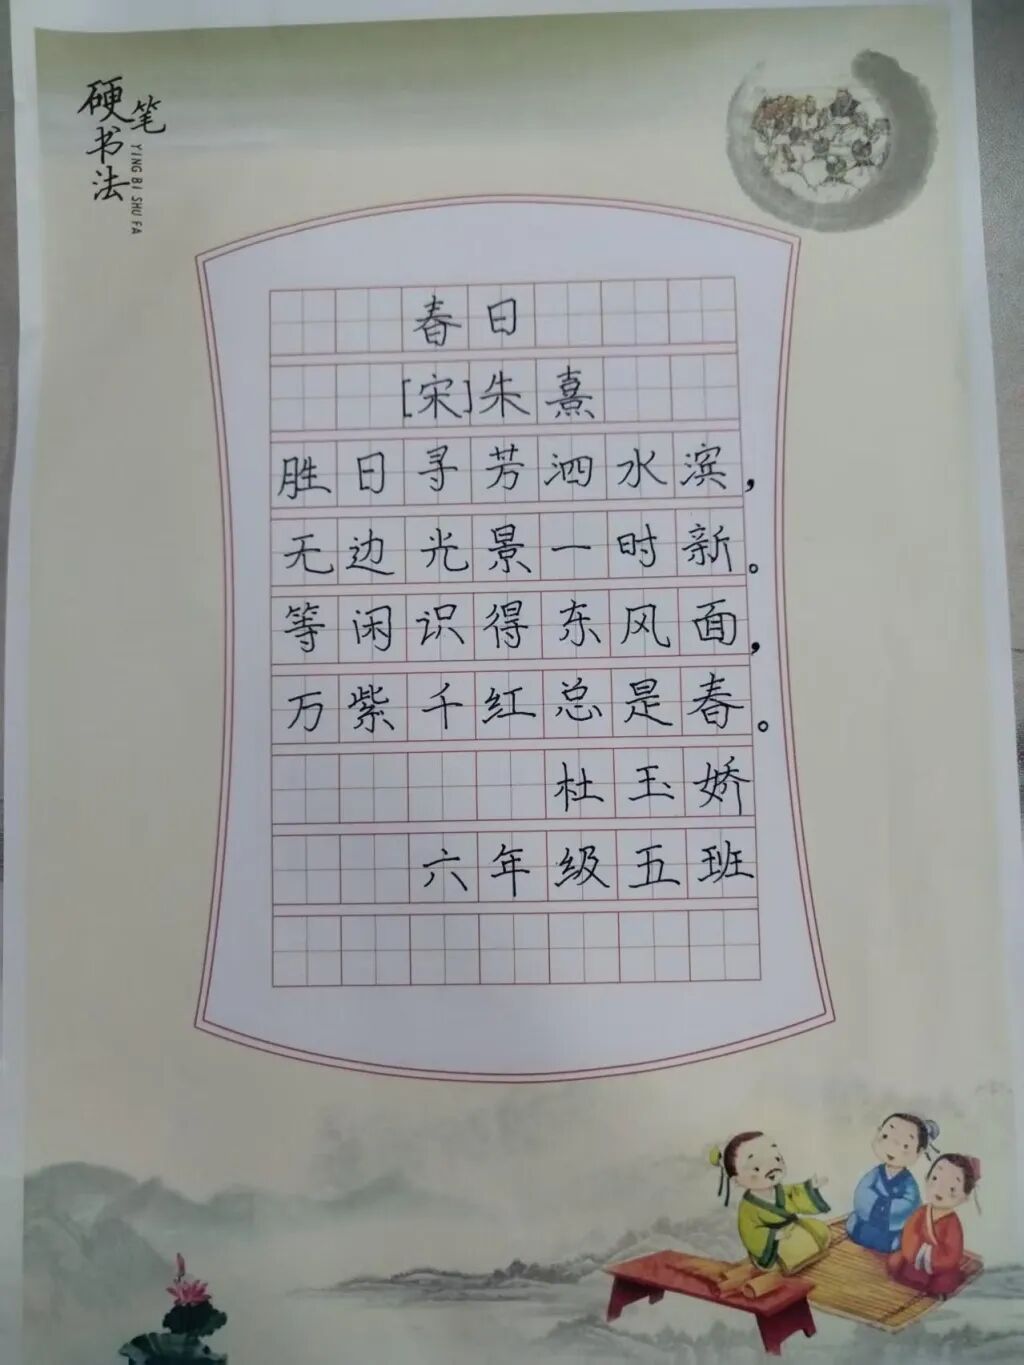 硬笔
书法
YING BI SHU FA
春日
[宋]朱熹
胜日寻芳泗水滨，
无边光景一时新。
等闲识得东风面，
万紫千红总是春。
杜玉娇
六年级五班